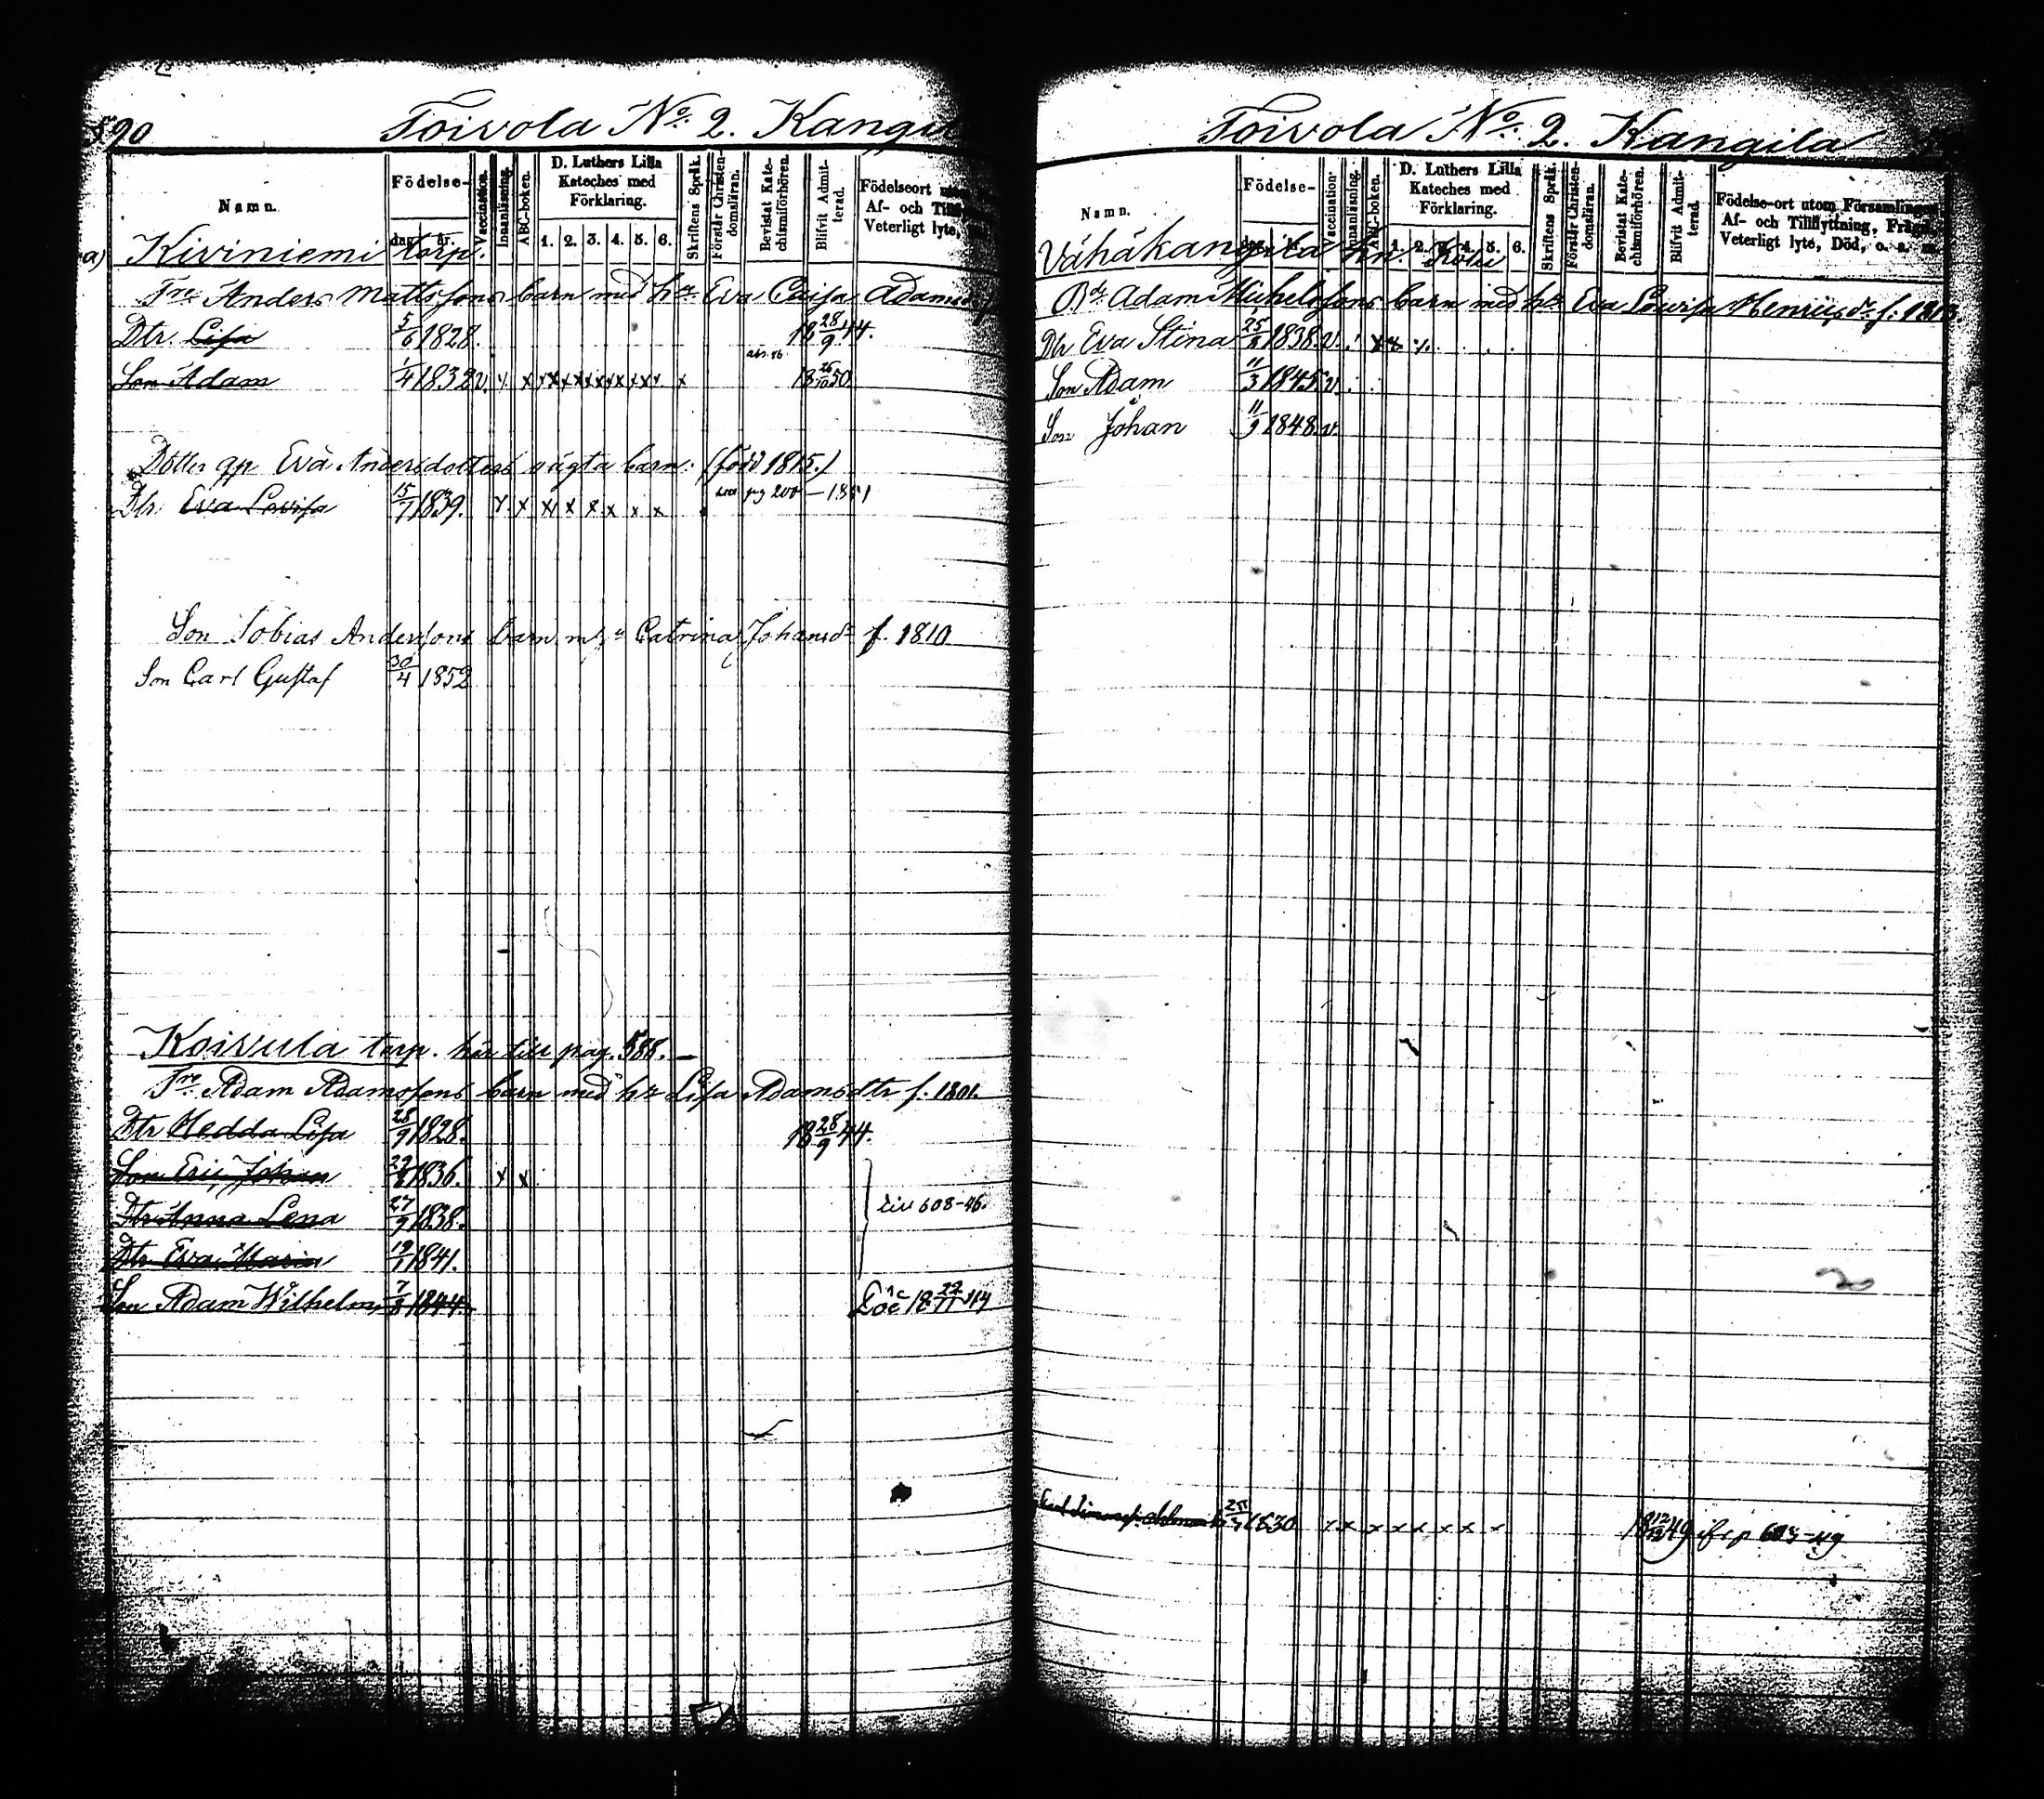 590
Toivola No. 2. Kangi
Namn.
Födelse-
dag. år.
Vaccination.
Innanläsning.
ABC-boken.
D. Luthers Lilla Kateches med Förklaring.
1. 2. 3. 4. 5. 6.
Skriftens Språk.
Förstår Christendomsläran.
Bevistat Katechismiförhören.
Blifvit Admitterad.
Födelseort
Af- och
Veterligt lyte,
a) Kiviniemi torp.
Tre Anders Mattssons barn med hu Eva Caisa
Dtr. Lisa 5/6 1828. 18 28/9 44.
Son Adam 1/4 1832 v. x x x x x x x x x x 18 26/10 50
Dotter qp Eva Andersdotters oägta barn: (född 1815.)
Dtr Eva Lovisa 15/7 1839. x x x x x x x x
Son Tobias Anderssons barn m hu Catrina Johansdr f. 1810
Son Carl Gustaf 30/4 1852
Koivula torp. hör till pag. 588.
Tre Adam Adamssons barn med hu Lisa Adamsdtr f. 1801.
Dtr Hedda Lisa 28/9 1828. 18 28/9 44.
Son Eric Johan 1836. x x
Dtr Anna Lena 27/9 1838. 608-46.
Dtr Eva Maria 1841.
Son Adam Wilhelm 7/8 1844. 18 22/11 44
Toivola No. 2. Kangila
Namn.
Födelse-
Vaccination.
Innanläsning.
ABC-boken.
D. Luthers Lilla Kateches med Förklaring.
1. 2. 3. 4. 5. 6.
Skriftens Språk.
Förstår Christendomsläran.
Bevistat Katechismiförhören.
Blifvit Admitterad.
Födelse-ort utom Församlingen,
Af- och Tillflyttning, Frägd,
Veterligt lyte, Död, o. s. m.
Vähäkangila
Adam Michelssons barn med hu Eva Lovisa Henricsdr f:
Dtr Eva Stina 1838. v.
Son Adam 11/3 1845. v.
Son Johan 11/9 1848. v.
1830 x x x x x x x x